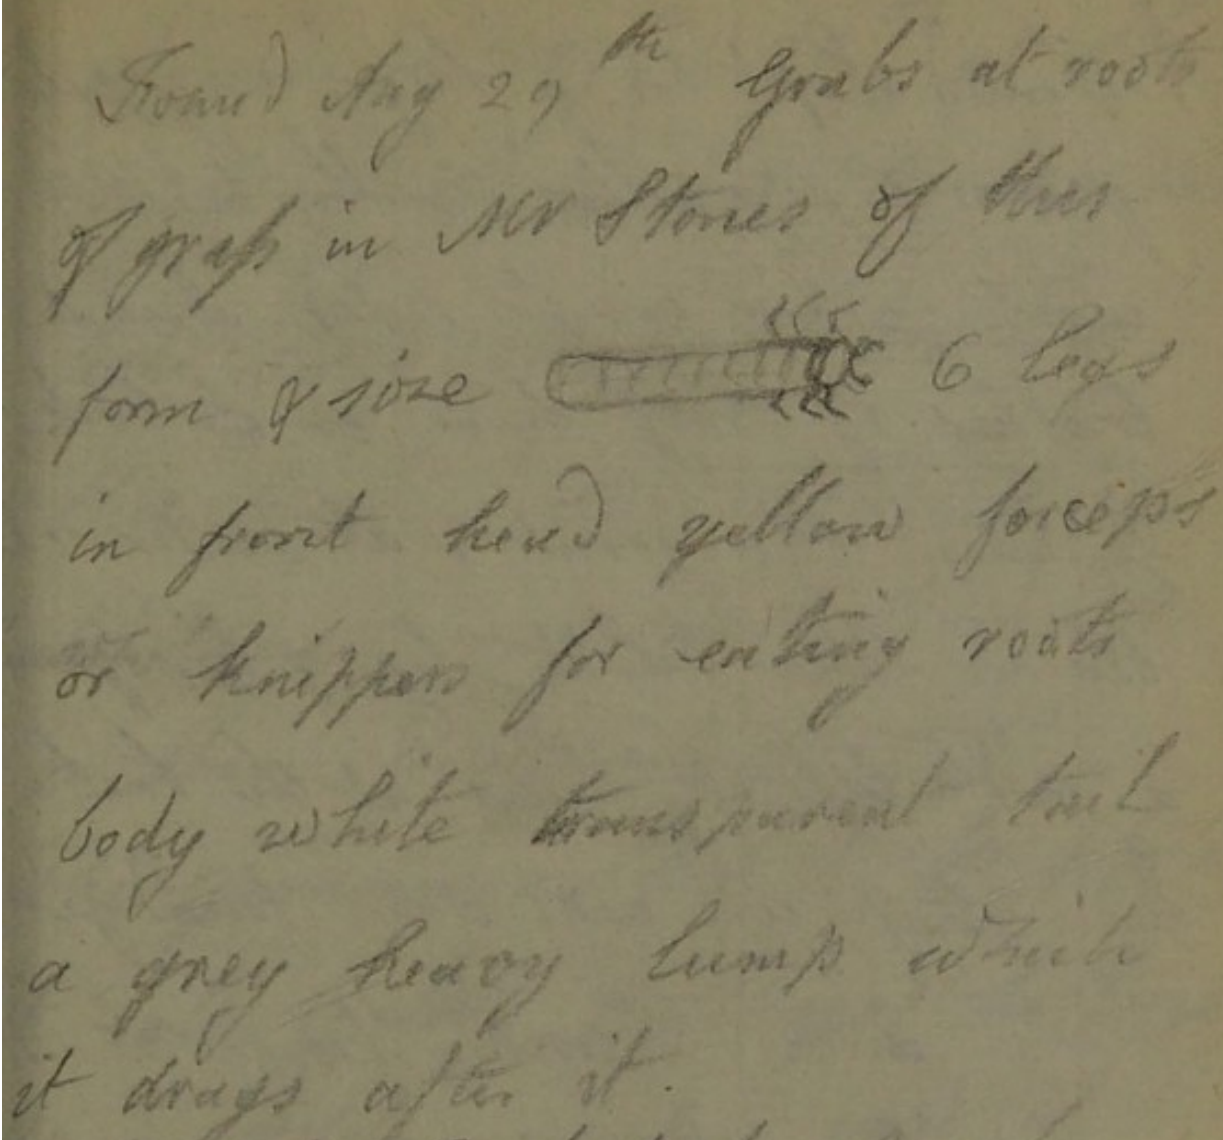 Found Aug 29th Grubs at roots
of graſs in Mr Stones of this
form & size 6 legs
in front head yellow forceps
or knippers for eating roots
body white transparent tail
a grey heavy lump which
it drags after it.